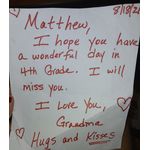 8/18/21
Matthew,
I hope you have
a wonderful day in
4th Grade. I will
miss you.
I Love You,
Grandma
Hugs and Kisses